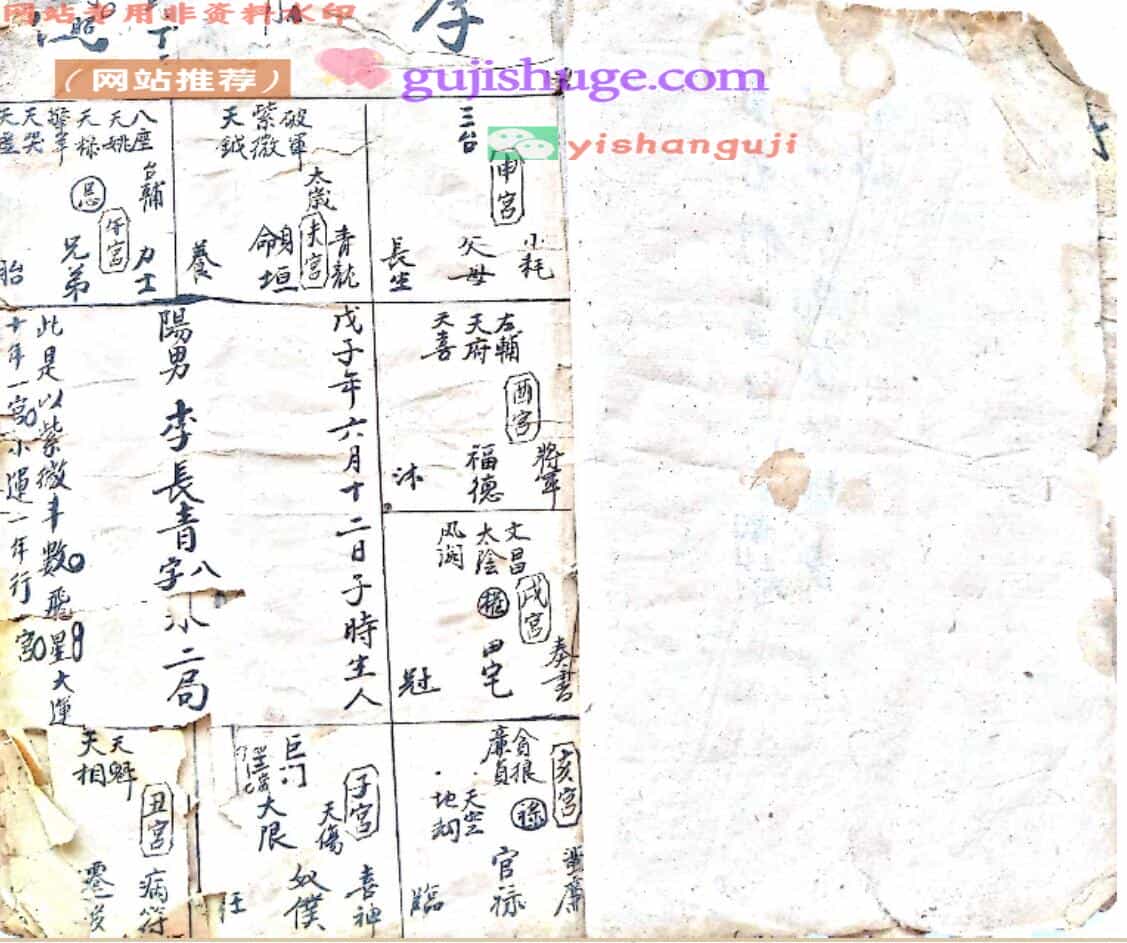 网站专用非资料水印
（网站推荐）
gujishuge.com
yishanguji
三台
申宮
小耗
父母
長生
破軍
紫微
天鉞
太歲
青龍
命垣
養
八座
天姚
天
天哭
台輔
忌
午宮
力士
兄弟
胎
左輔
天府
天喜
酉宮
將軍
福德
沐
文昌
太陰
戌宮
奏書
田宅
冠
貪狼
廉貞
亥宮
祿
天空
地劫
官祿
臨
巨门
子宮
天傷
大限
喜神
奴僕
天魁
天相
丑宮
病符
戊子年六月十二日子時生人
陽男 李長青八字 水二局
此是以紫微斗數飛星大運
十年一宮小運一年行一宮